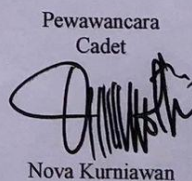 Pewawancara
Cadet
Nova Kurniawan